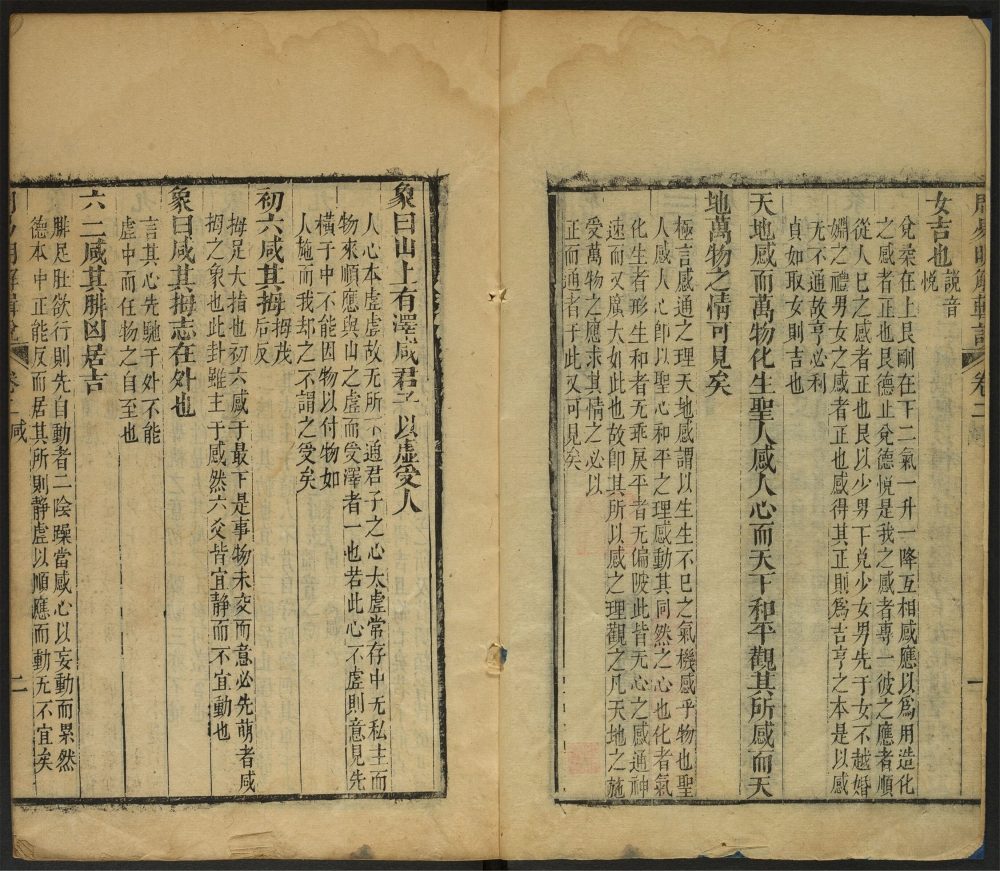 周易明解輯說 卷二
女吉也 說音悅
兌柔在上艮剛在下二氣一升一降互相感應以爲用造化
之感者正也艮德止兌德悅是我之感者專一彼之應者順
從人已之感者正也艮以少男下兌少女男先于女不越婚
嫺之禮男女之感者正也感得其正則爲吉亨之本是以感
无不通故亨必利
貞如取女則吉也
天地感而萬物化生聖人感人心而天下和平觀其所感而天
地萬物之情可見矣
極言感通之理天地感謂以生生不已之氣機感乎物也聖
人感人心卽以聖心和平之理感動其同然之心也化者氣
化生者形生和者无乖戾平者无偏陂此皆无心之感通神
速而又廣大如此也故卽其所以感之理觀之凡天地之施
受萬物之應求其情之必以
正而通者于此又可見矣
象曰山上有澤咸君子以虛受人
人心本虛虛故无所不通君子之心太虛常存中无私主而
物來順應與山之虛而受澤者一也若此心不虛則意見先
橫于中不能因物以付物如
人施而我却之不謂之受矣
初六咸其拇 拇茂后反
拇足大指也初六感于最下是事物未交而意必先萌者咸
拇之象也此卦雖主于感然六爻皆宜静而不宜動也
象曰咸其拇志在外也
言其心先馳于外不能
虛中而任物之自至也
六二咸其腓凶居吉
腓足肚欲行則先自動者二陰躁當感心以妄動而累然
德本中正能反而居其所則静虛以順應而動无不宜矣
卷二 咸
二